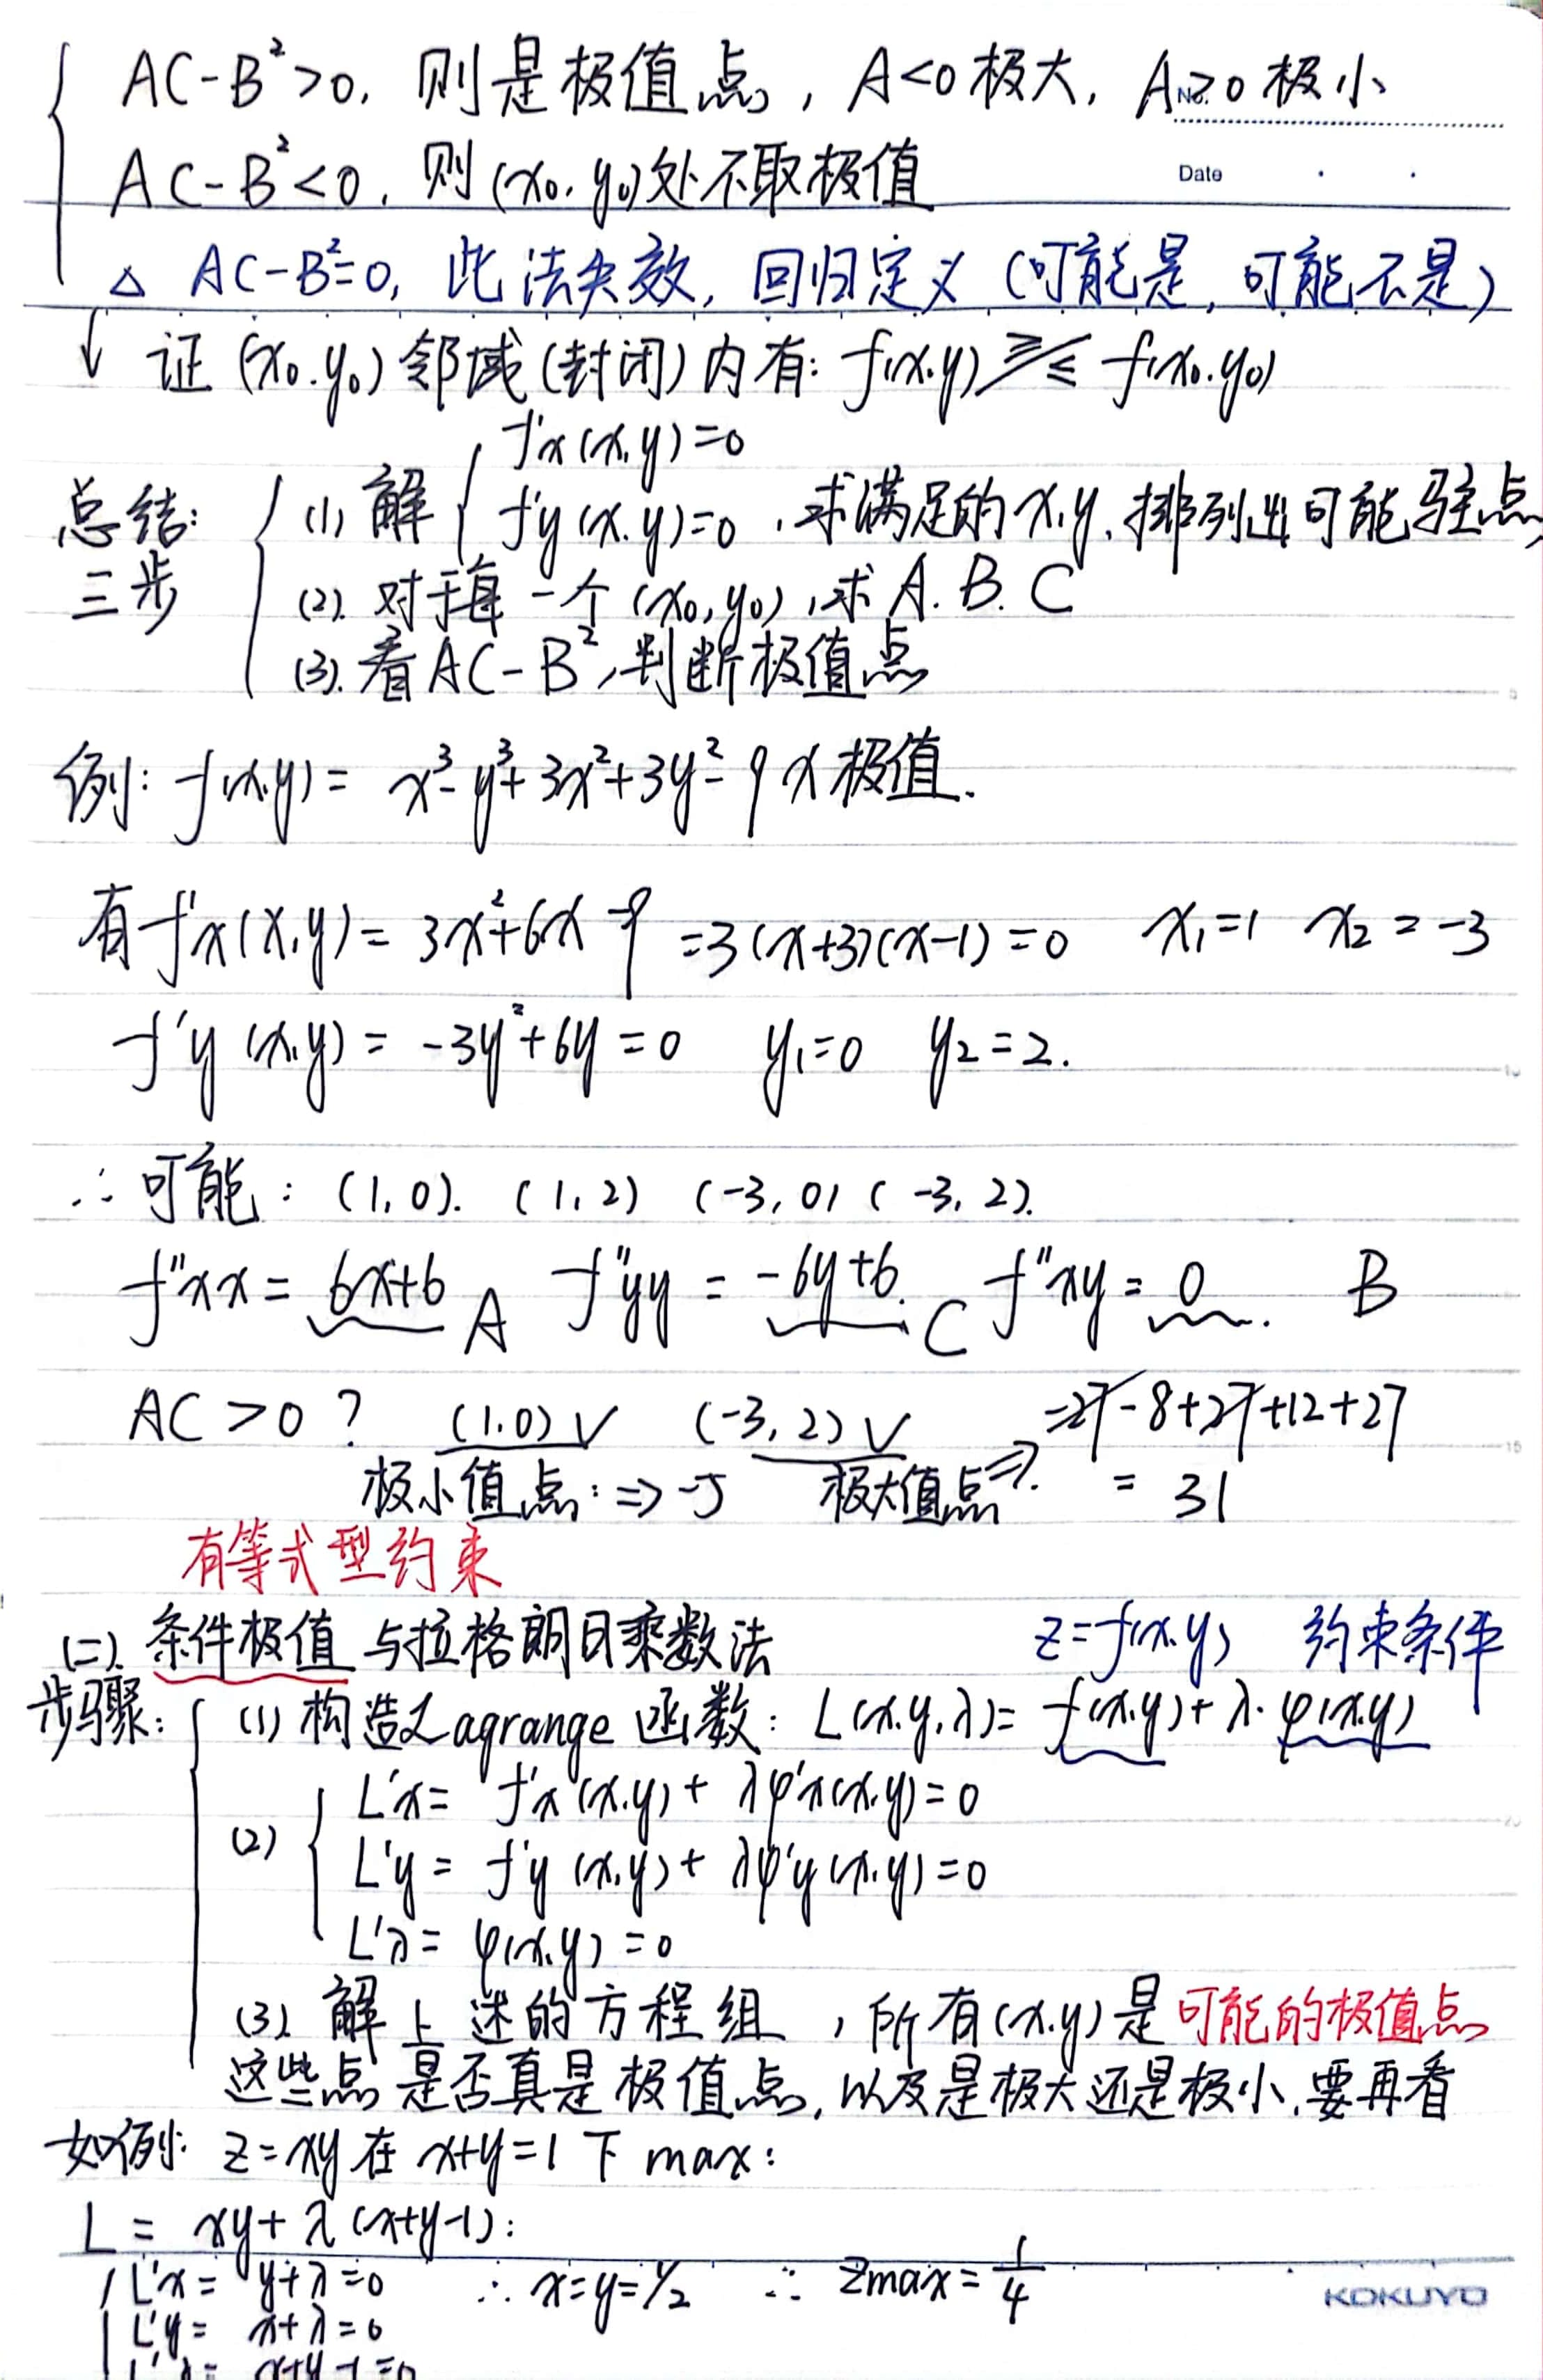 AC-B²>0, 则是极值点, A<0极大, A>0极小
No.
AC-B²<0, 则(x₀,y₀)处不取极值
Date
△ AC-B²=0, 此法失效, 回归定义 (可能是, 可能不是)
↓ 证 (x₀.y₀) 邻域(封闭)内有: f(x.y) ≥/≤ f(x₀.y₀)
总结: 三步
(1) 解 { f'x(x,y)=0
f'y(x.y)=0 , 求满足的x,y, 排列出可能驻点,
(2). 对于每一个 (x₀,y₀), 求 A. B. C
(3). 看AC-B², 判断极值点
例: f(x,y)= x³-y³+3x²+3y²-9x极值.
有f'x(x,y)= 3x²+6x-9 =3(x+3)(x-1)=0 x₁=1 x₂=-3
f'y(x,y)= -3y²+6y=0 y₁=0 y₂=2.
∴可能: (1,0). (1,2) (-3,0) (-3,2).
f''xx= 6x+6 A f''yy = -6y+6. C f''xy=0. B
AC>0? (1.0)√ (-3,2)√ =-27-8+27+12+27
极小值点:⇒-5 极大值点⇒. = 31
有等式型约束
(二). 条件极值与拉格朗日乘数法 z=f(x.y) 约束条件
步骤: (1) 构造Lagrange函数: L(x.y,λ)= f(x.y)+λ·φ(x.y)
(2) { L'x= f'x(x.y)+ λφ'x(x.y)=0
L'y= f'y(x.y)+ λφ'y(x.y)=0
L'λ= φ(x.y)=0
(3) 解上述的方程组, 所有(x.y)是可能的极值点
这些点是否真是极值点, 以及是极大还是极小,要再看
如例: z=xy在x+y=1下max:
L = xy+λ(x+y-1):
L'x= y+λ=0 ∴x=y=1/2 ∴ zmax=1/4
KOKUYO
L'y= x+λ=0
L'λ= x+y-1=0